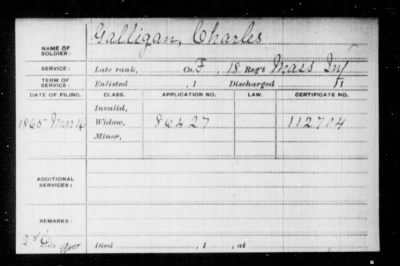 NAME OF SOLDIER: Galligan, Charles
SERVICE: Late rank, Co. F, 18 Reg't Mass Inf
TERM OF SERVICE: Enlisted , 1 Discharged , 1
DATE OF FILING. CLASS. APPLICATION NO. LAW. CERTIFICATE NO.
Invalid,
1865 Widow, 86427 112704
Minor,
ADDITIONAL SERVICES:
REMARKS:
Died , 1 , at